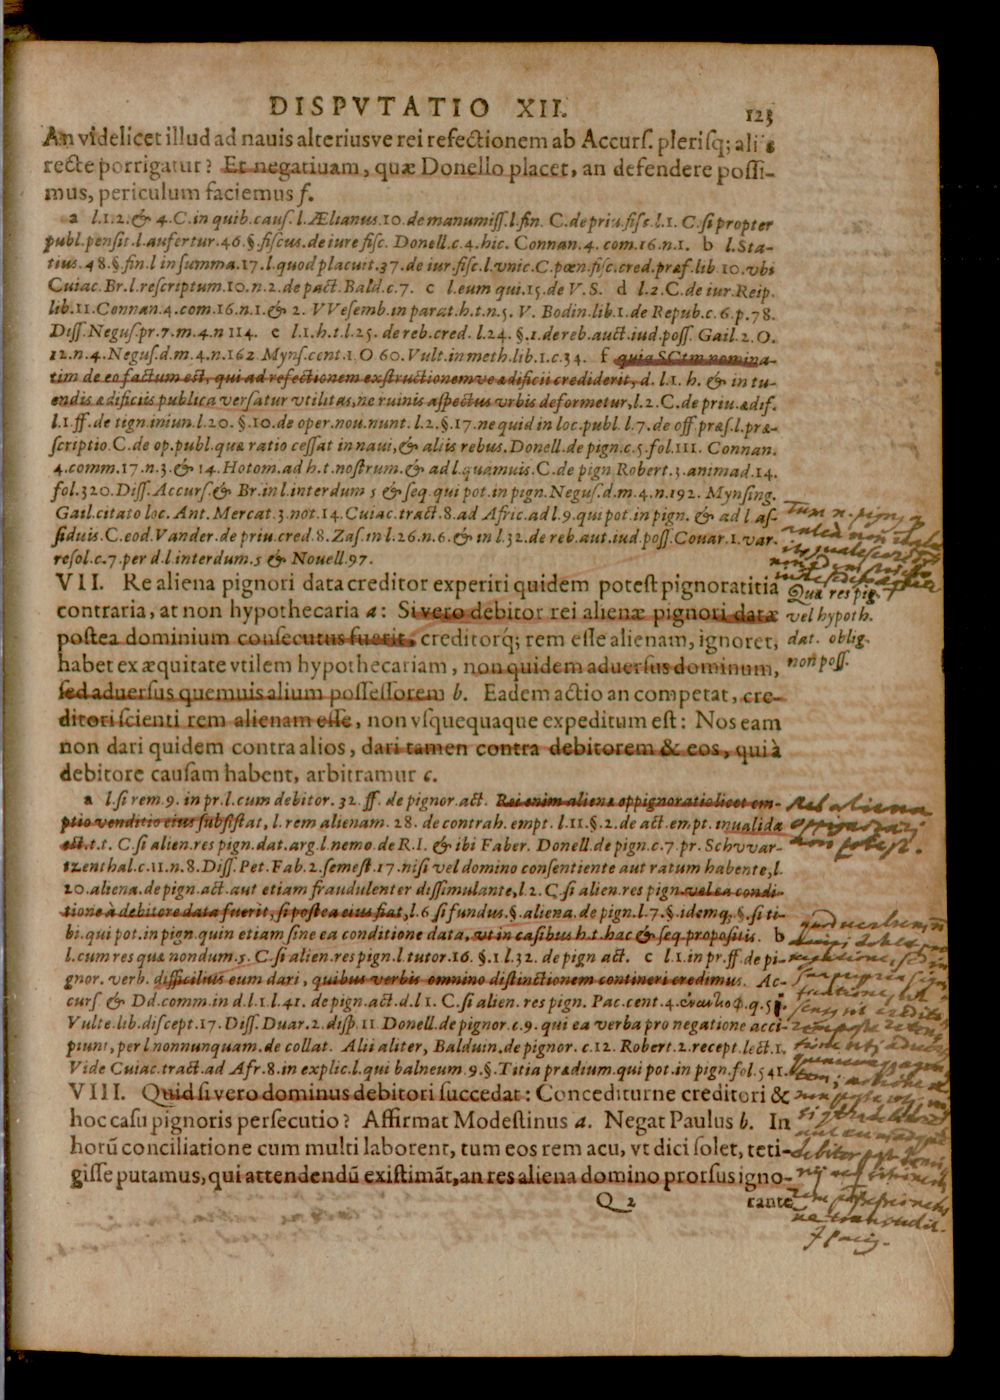 DISPVTATIO XII.
123
An videlicet illud ad nauis alteriusve rei refectionem ab Accurs. plerisq; aliis
recte porrigatur? Et negatiuam, quæ Donello placet, an defendere possi-
mus, periculum faciemus f.
a l.1.2.& 4.C.in quib.caus.l.Ælianus.10.de manumiss.l.fin. C.de priu.fisc.l.1. C.si propter
publ.pensit.l.aufertur.46.§.fiscus.de iure fisc. Donell.c.4.hic. Connan.4.com.16.n.1. b l.Sta-
tius.48.§.fin.l in summa.17.l.quod placuit.37.de iur.fisc.l.vnic.C.pœn.fisc.cred.præf.lib 10.vbi
Cuiac.Br.l.rescriptum.10.n.2.de pact.Bald.c.7. c l.eum qui.15.de V.S. d l.2.C.de iur.Reip.
lib.11.Connan.4.com.16.n.1.& 2. VVesemb.in parat.h.t.n.5. V. Bodin.lib.1.de Repub.c.6.p.78.
Diss.Negus.pr.7.m.4.n 114. e l.1.h.t.l.25.de reb.cred. l.24. §.1.de reb.auct.iud.poss. Gail.2.O.
12.n.4.Negus.d.m.4.n.162 Myns.cent.1.O 60.Vult.in meth.lib.1.c.34. f quia SCtm nomina-
tim de eo factum est, qui ad refectionem exstructionemve ædificii crediderit, d. l.1. h. & in tu-
endis ædificiis publica versatur vtilitas, ne ruinis aspectus vrbis deformetur, l.2.C.de priu.ædif.
l.1.ff.de tign.iniun.l.20.§.10.de oper.nou.nunt. l.2.§.17.ne quid in loc.publ.l.7.de off.præs.l.præ-
scriptio.C.de op.publ.quæ ratio cessat in naui, & aliis rebus. Donell.de pign.c.5.fol.111. Connan.
4.comm.17.n.3.& 14.Hotom.ad h.t.nostrum.& ad l.quamuis.C.de pign.Robert.3.animad.14.
fol.320.Diss.Accurs.& Br.in l.interdum 5 & seq.qui pot.in pign.Negus.d.m.4.n.192. Mynsing.
Gail.citato loc. Ant.Mercat.3.not.14.Cuiac.tract.8.ad Afric.ad l.9.qui pot.in pign. & ad l as-
siduis.C.eod.Vander.de priu.cred.8.Zas.in l.26.n.6.& in l.32.de reb.aut.iud.poss.Couar.1.var.
resol.c.7.per d.l interdum.5 & Nouell.97.
VII. Re aliena pignori data creditor experiri quidem potest pignoratitia
contraria, at non hypothecaria a: Si vero debitor rei alienæ pignori datæ
postea dominium consecutus fuerit, creditorq́; rem esse alienam, ignoret,
habet ex æquitate vtilem hypothecariam, non quidem aduersus dominum,
sed aduersus quemuis alium possessorem b. Eadem actio an competat, cre-
ditori scienti rem alienam esse, non vsquequaque expeditum est: Nos eam
non dari quidem contra alios, dari tamen contra debitorem & eos, qui à
debitore causam habent, arbitramur c.
Quæ res pig.
vel hypoth.
dat. oblig.
non poss.
a l.si rem.9. in pr.l.cum debitor. 32. ff. de pignor.act. Rei enim alienæ oppignoratio licet em-
ptio venditio eius subsistat, l.rem alienam. 28. de contrah. empt. l.11.§.2.de act.empt. inualida
est.t.t. C.si alien.res pign.dat.arg.l.nemo.de R.I. & ibi Faber. Donell.de pign.c.7.pr.Schvvar-
tzenthal.c.11.n.8.Diss.Pet.Fab.2.semest.17.nisi vel domino consentiente aut ratum habente, l.
20.aliena.de pign.act.aut etiam fraudulenter dissimulante, l.2.C.si alien.res pign vel ea condi-
tione à debitore data fuerit, si postea eius fiat, l.6 si fundus.§.aliena.de pign.l.7.§.idemq;.§.si ti-
bi.qui pot.in pign.quin etiam sine ea conditione data, vt in casibus h.t.hac & seq.propositis. b
l.cum res quæ nondum.5.C.si alien.res pign.l tutor.16. §.1.l.32. de pign act. c l.1.in pr.ff.de pi-
gnor. verb. difficilius eum dari, quibus verbis omnino distinctionem contineri credimus. Ac-
curs & Dd.comm.in d.l.1.l 41. de pign.act.d.l 1. C.si alien. res pign. Pac.cent.4. q.51
Vulte.lib.discept.17.Diss.Duar.2.disp.11 Donell.de pignor.c.9. qui ea verba pro negatione acci-
piunt, per l nonnunquam.de collat. Alii aliter, Balduin.de pignor. c.12. Robert.2.recept.lect.1.
Vide Cuiac.tract.ad Afr.8.in explic.l.qui balneum 9.§.Titia prædium.qui pot.in pign.fol.541.
rei aliena
oppignorari
non potest.
VIII. Quid si vero dominus debitori succedat: Concediturne creditori &
hoc casu pignoris persecutio? Affirmat Modestinus a. Negat Paulus b. In
horū conciliatione cum multi laborent, tum eos rem acu, vt dici solet, teti-
gisse putamus, qui attendendū existimāt, an res aliena domino prorsus igno-
Q 2
rante